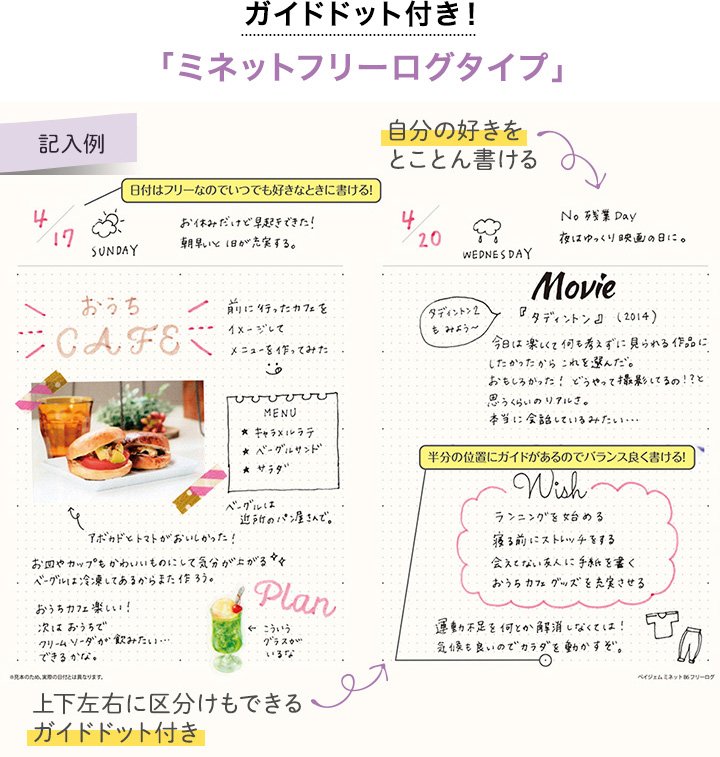 ガイドドット付き！
「ミネットフリーログタイプ」
記入例
自分の好きを
とことん書ける
日付はフリーなのでいつでも好きなときに書ける!
4/17
SUNDAY
お休みだけど早起きできた!
朝早いと1日が充実する。
おうち
CAFE
前に行ったカフェを
イメージして
メニューを作ってみた
MENU
★ キャラメルラテ
★ ベーグルサンド
★ サラダ
ベーグルは
近所のパン屋さんで。
アボカドとトマトがおいしかった!
お皿やカップもかわいいものにして気分が上がる
ベーグルは冷凍してあるからまた作ろう。
おうちカフェ楽しい!
次はおうちで
クリームソーダが飲みたい…
できるかな。
Plan
← こういう
グラスが
いるな
4/20
WEDNESDAY
No 残業 Day
夜はゆっくり映画の日に。
Movie
タディントン2
もみよう〜
『タディントン』 (2014)
今日は楽しくて何も考えずに見られる作品に
したかったから これを選んだ。
おもしろかった! どうやって撮影してるの!?と
思うくらいのリアルさ。
本当に会話しているみたい…
半分の位置にガイドがあるのでバランス良く書ける!
Wish
ランニングを始める
寝る前にストレッチをする
会えてない友人に手紙を書く
おうちカフェグッズを充実させる
運動不足を何とか解消しなくては!
気候も良いのでカラダを動かすぞ。
※見本のため、実際の日付とは異なります。
ペイジェム ミネット B6 フリーログ
上下左右に区分けもできる
ガイドドット付き